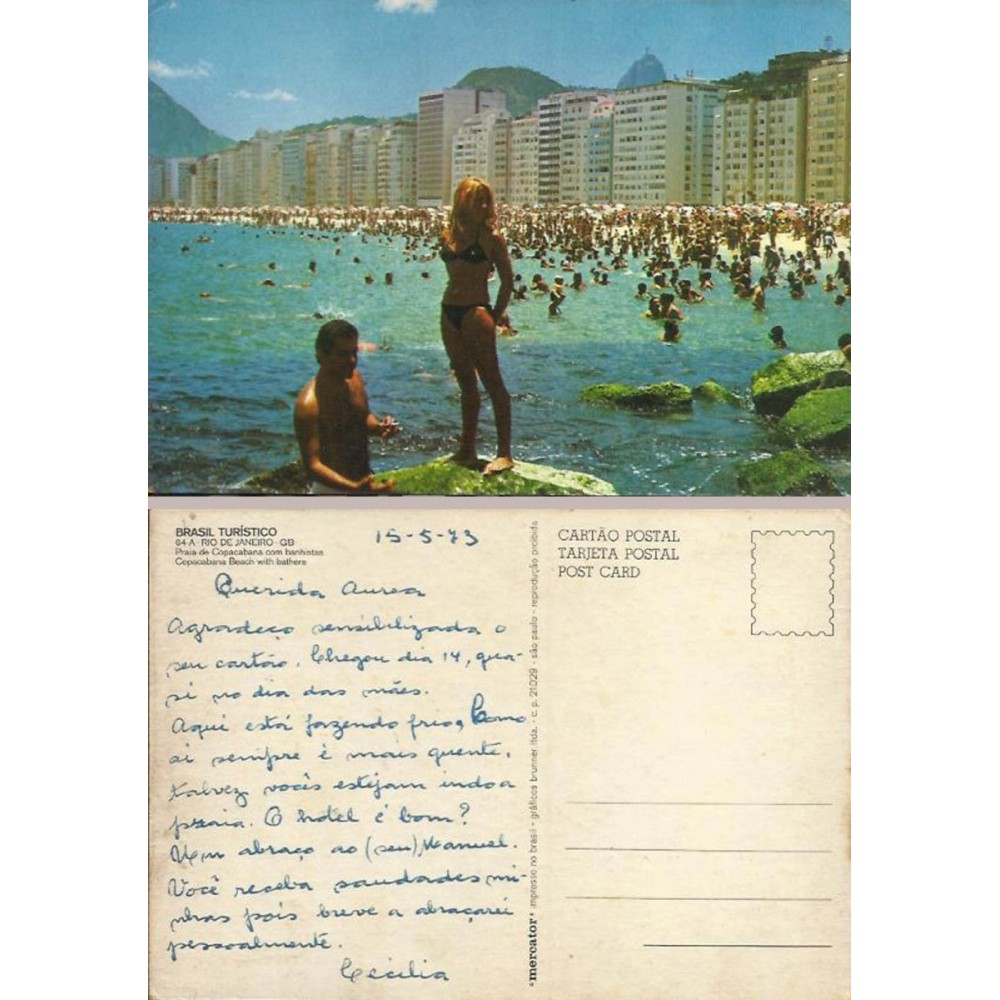 BRASIL TURÍSTICO
64-A - RIO DE JANEIRO - GB
Praia de Copacabana com banhistas
Copacabana Beach with bathers
15-5-73
Querida Aurea
Agradeço sensibilizada o
seu cartão. Chegou dia 14, qua-
si no dia das mães.
Aqui está fazendo frio, Como
aí sempre é mais quente,
talvez vocês estejam indo a
praia. O hotel é bom?
Um abraço ao (seu) Manuel.
Você receba saudades mi-
nhas pois breve a abraçarei
pessoalmente.
Cecilia
"mercator" impresso no brasil - gráficos brunner ltda. - c. p. 21.029 - são paulo - reprodução proibida
CARTÃO POSTAL
TARJETA POSTAL
POST CARD